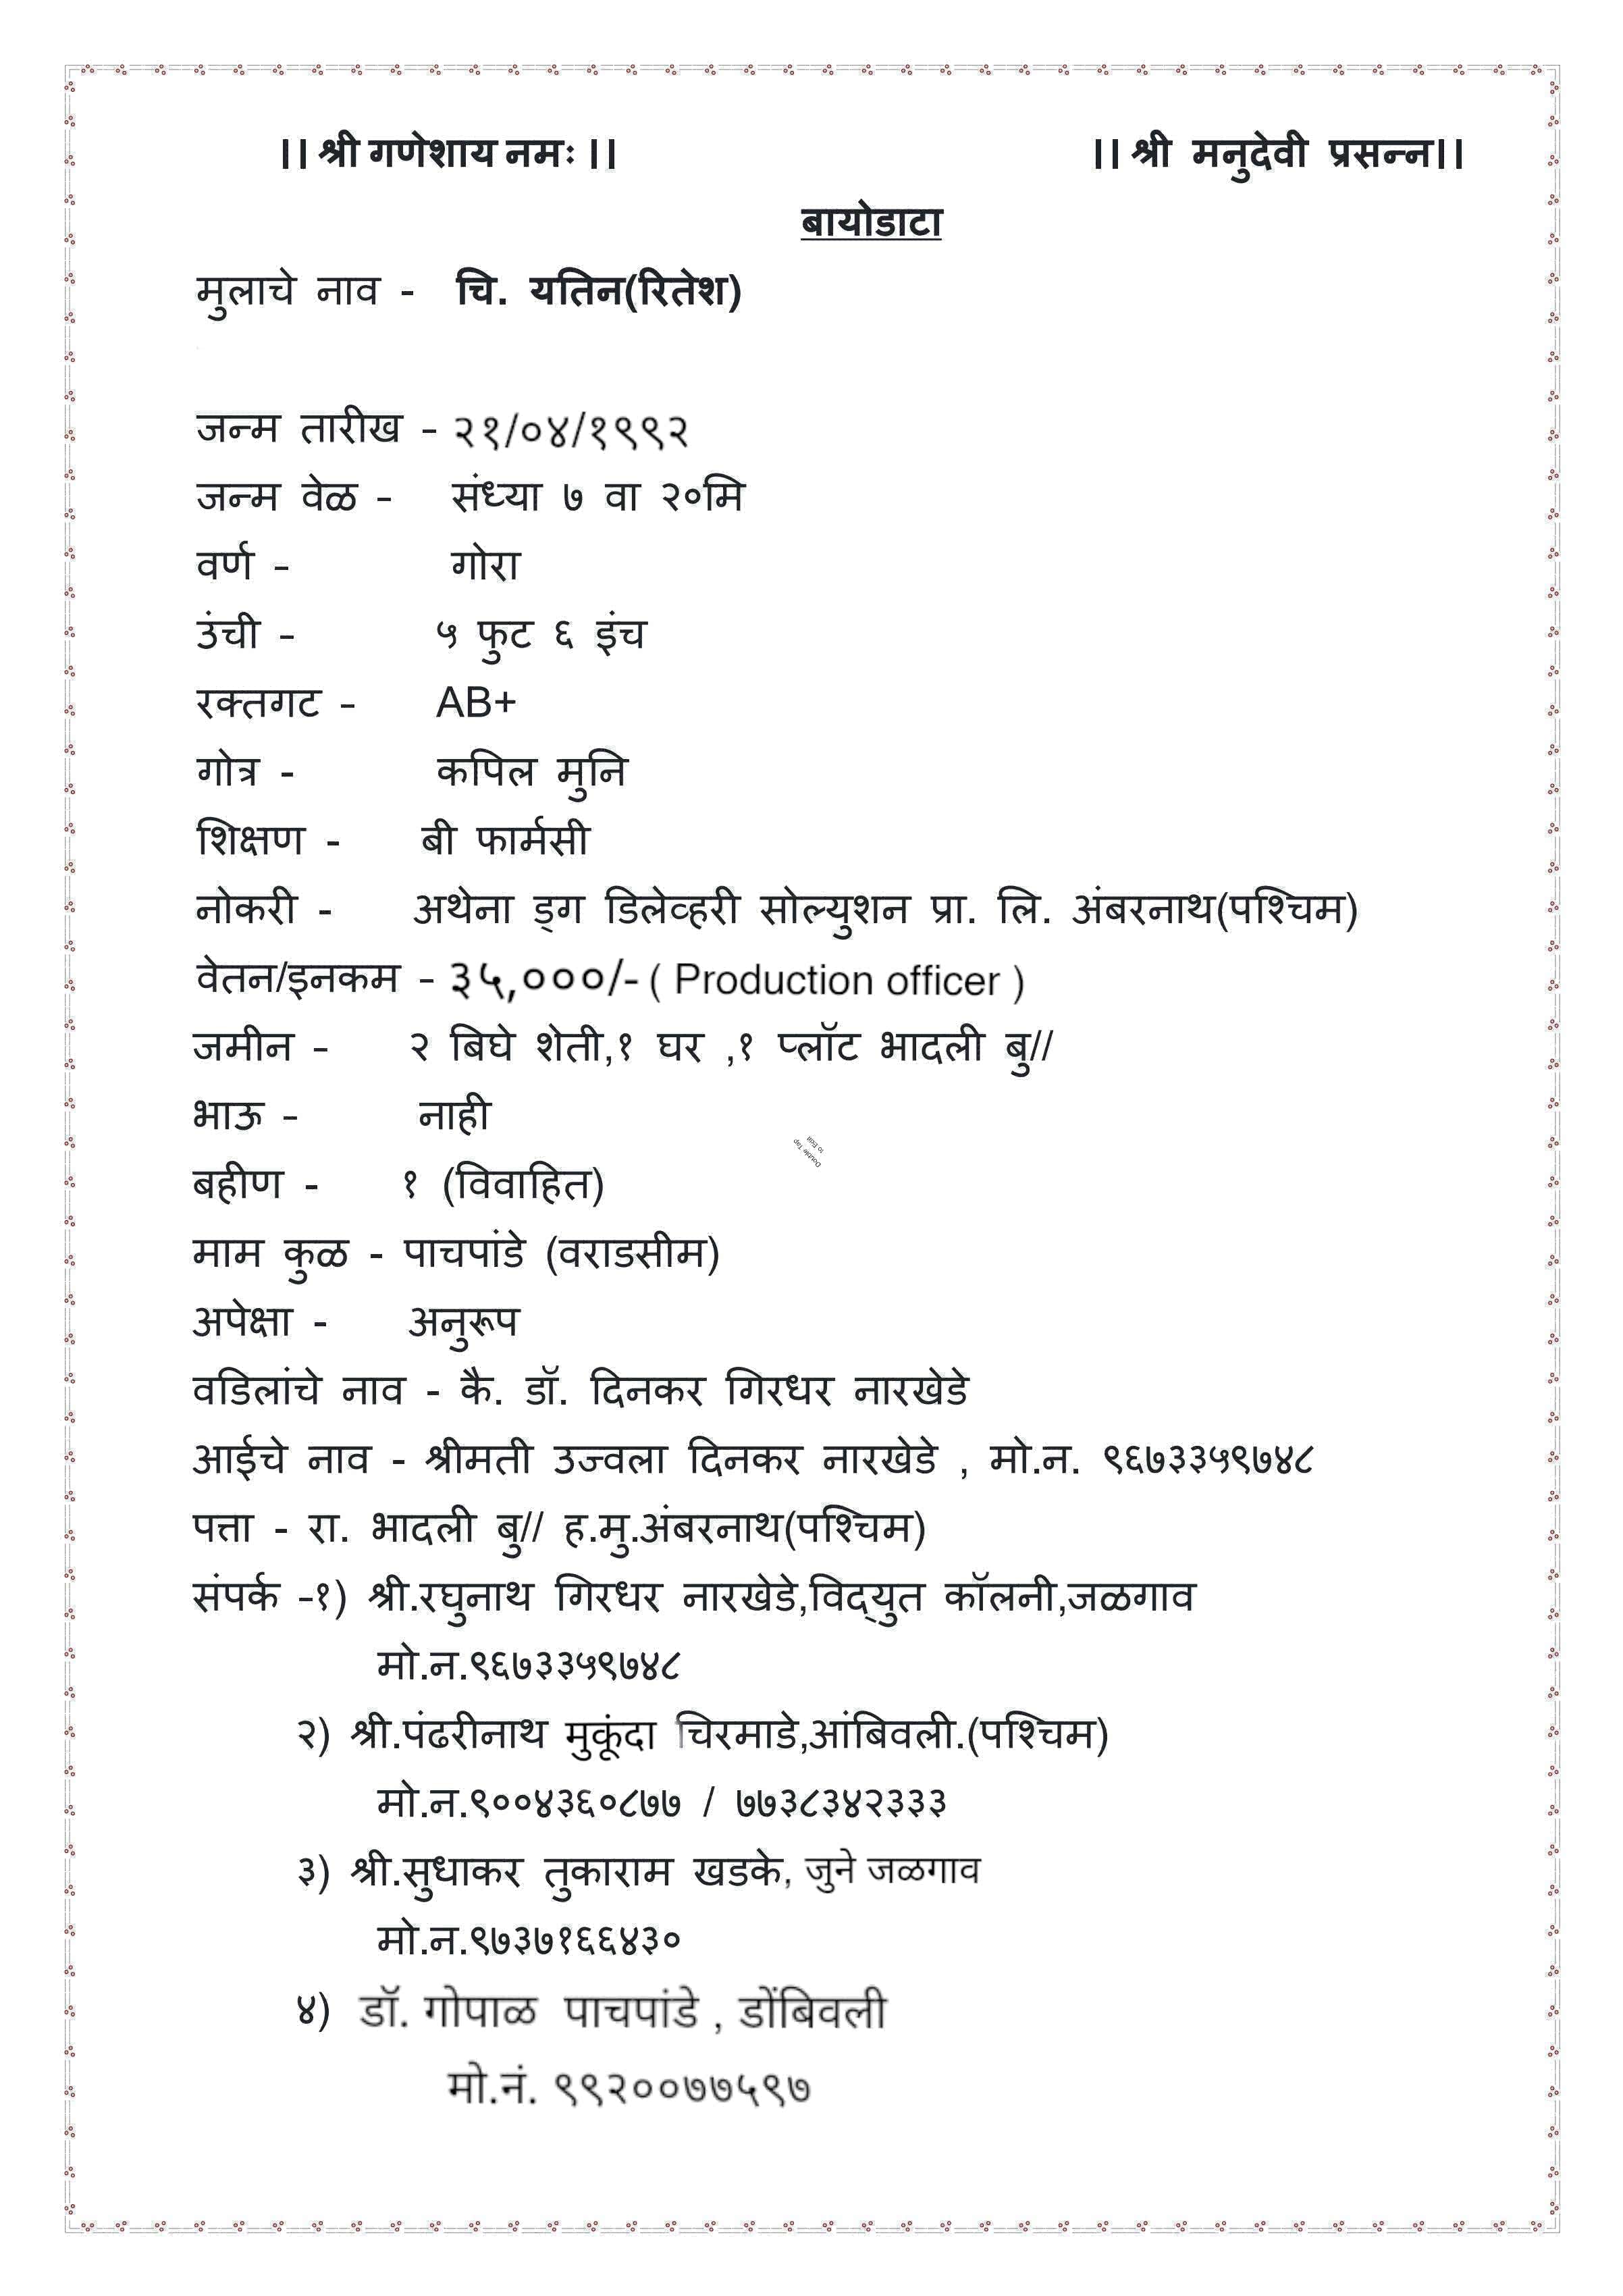 ।। श्री गणेशाय नमः ।। ।। श्री मनुदेवी प्रसन्न।।
बायोडाटा
मुलाचे नाव - चि. यतिन(रितेश)
जन्म तारीख - २१/०४/१९९२
जन्म वेळ - संध्या ७ वा २०मि
वर्ण - गोरा
उंची - ५ फुट ६ इंच
रक्तगट - AB+
गोत्र - कपिल मुनि
शिक्षण - बी फार्मसी
नोकरी - अथेना ड्ग डिलेव्हरी सोल्युशन प्रा. लि. अंबरनाथ(पश्चिम)
वेतन/इनकम - ३५,०००/- ( Production officer )
जमीन - २ बिघे शेती,१ घर ,१ प्लॉट भादली बु//
भाऊ - नाही
Double Tap
to Edit
बहीण - १ (विवाहित)
माम कुळ - पाचपांडे (वराडसीम)
अपेक्षा - अनुरूप
वडिलांचे नाव - कै. डॉ. दिनकर गिरधर नारखेडे
आईचे नाव - श्रीमती उज्वला दिनकर नारखेडे , मो.न. ९६७३३५९७४८
पत्ता - रा. भादली बु// ह.मु.अंबरनाथ(पश्चिम)
संपर्क -१) श्री.रघुनाथ गिरधर नारखेडे,विद्‌युत कॉलनी,जळगाव
मो.न.९६७३३५९७४८
२) श्री.पंढरीनाथ मुकूंदा चिरमाडे,आंबिवली.(पश्चिम)
मो.न.९००४३६०८७७ / ७७३८३४२३३३
३) श्री.सुधाकर तुकाराम खडके, जुने जळगाव
मो.न.९७३७१६६४३०
४) डॉ. गोपाळ पाचपांडे , डोंबिवली
मो.नं. ९९२००७७५९७